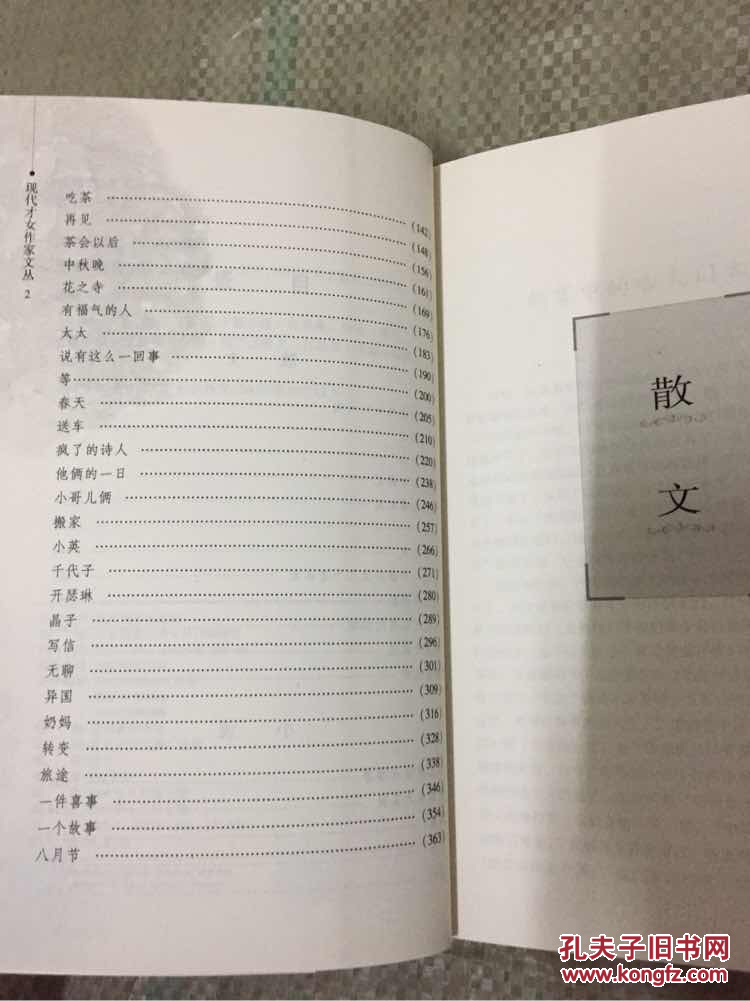 现代才女作家文丛 2
吃茶 ……………………………………………… (142)
再见 ……………………………………………… (148)
茶会以后 ……………………………………………… (156)
中秋晚 ……………………………………………… (161)
花之寺 ……………………………………………… (169)
有福气的人 ……………………………………………… (176)
太太 ……………………………………………… (183)
说有这么一回事 ……………………………………………… (190)
等 ……………………………………………… (200)
春天 ……………………………………………… (205)
送车 ……………………………………………… (210)
疯了的诗人 ……………………………………………… (220)
他俩的一日 ……………………………………………… (238)
小哥儿俩 ……………………………………………… (246)
搬家 ……………………………………………… (257)
小英 ……………………………………………… (266)
千代子 ……………………………………………… (271)
开瑟琳 ……………………………………………… (280)
晶子 ……………………………………………… (289)
写信 ……………………………………………… (296)
无聊 ……………………………………………… (301)
异国 ……………………………………………… (309)
奶妈 ……………………………………………… (316)
转变 ……………………………………………… (328)
旅途 ……………………………………………… (338)
一件喜事 ……………………………………………… (346)
一个故事 ……………………………………………… (354)
八月节 ……………………………………………… (363)
散文
孔夫子旧书网
www.kongfz.com